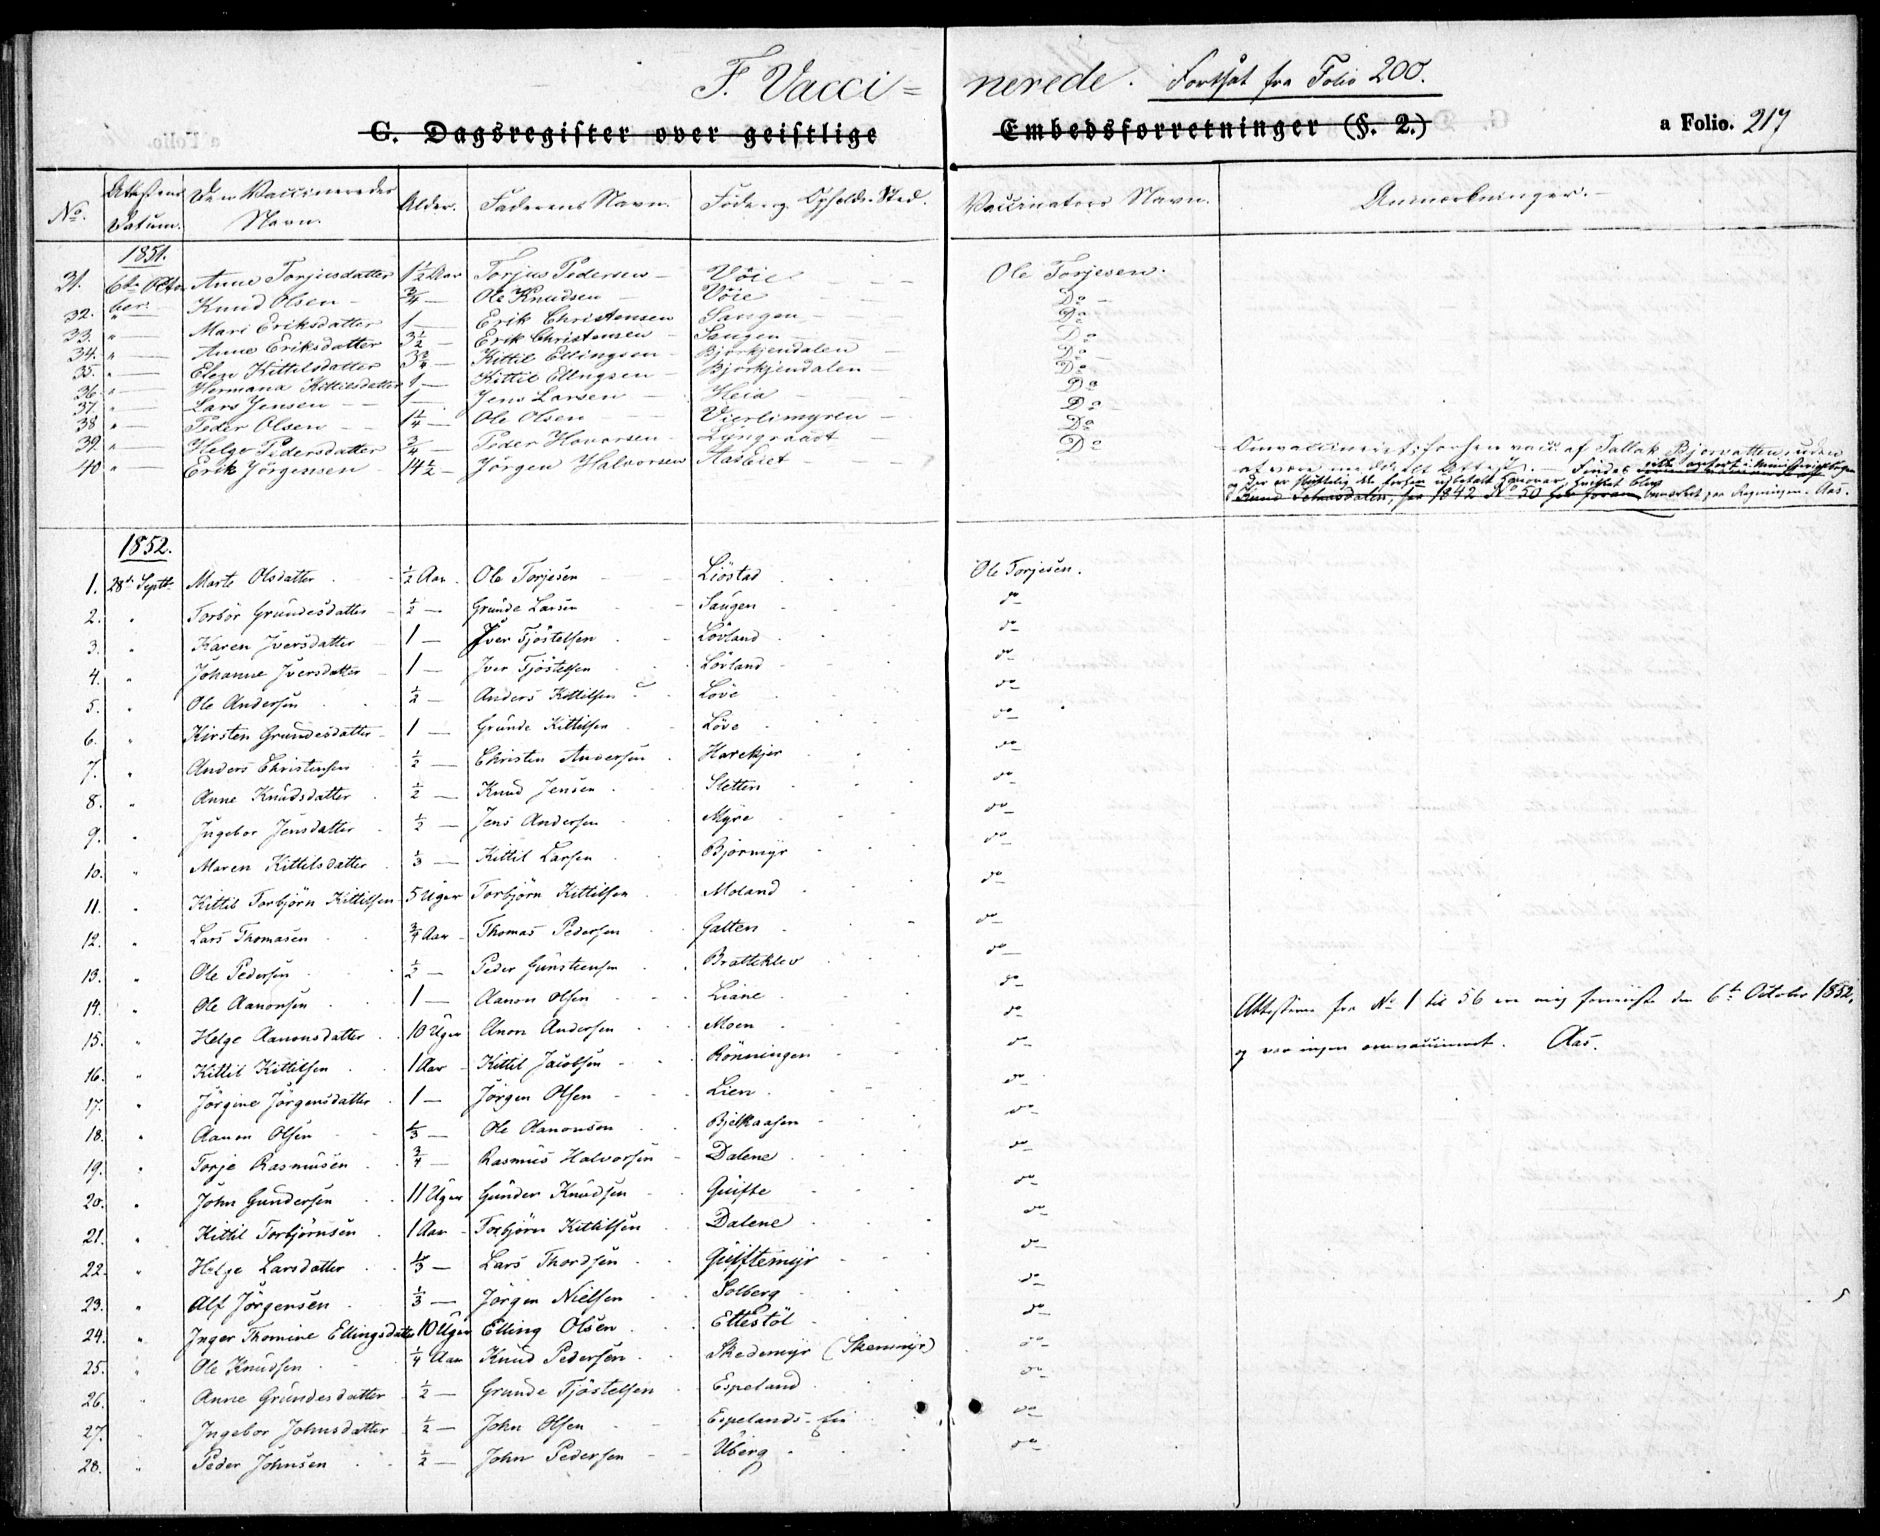 F. Vacci= nerede. Fortsat fra Folio 200.
G. Dagsregister over geistlige Embedsforretninger (§. 2.) a Folio. 217
No. Attestens Datum. Den Vaccineredes Navn. Alder. Faderens Navn. Føde og Opholds-Sted. Vaccinators Navn. Anmærkninger.
1851.
31. 6te Octo ber. Anne Torjusdatter 1½ Aar Torjus Pedersen Vöie Ole Torjesen.
32. " Knud Olsen ¾ Ole Knudsen Vöie Do
33. " Mari Eriksdatter 1 Erik Christensen Saugen Do
34. " Anne Eriksdatter 3½ Erik Christensen Saugen Do
35. " Elen Kittilsdatter 3¾ Kittil Ellingsen Bjørkjendalen Do
36. " Hermana Kittilsdatter 1 Kittil Ellngsen Bjørkjendalen Do
37. " Lars Jensen 1 Jens Larsen Heia Do
38 " Peder Olsen 1¼ Ole Olsen Vierlimyren Do
39. " Helge Pedersdatter ¾ Peder Havorsen Lyngroadt Do
40 " Erik Jörgensen 14½ Jörgen Halvorsen Aasbiet
Omvaccineret; forhen vacc. af Tallak Bjorvatten; uden
at være meddelt Attest. Findes
1842 No 50 Aas.
1852.
1. 28de Septb. Marte Olsdatter ½ Aar Ole Torjesen Liöstad Ole Torjesen.
2. " Torbör Grundesdatter ½ Grunde Larsen Saugen do
3. " Karen Iversdatter 1 Iver Tjöstelsen Lövland do
4. " Johanne Iversdatter 1 Iver Tjöstelsen Lövland do
5. " Ole Andersen ½ Anders Kittilsen Löve do
6. " Kirsten Grundesdatter 1 Grunde Kittilsen Löve do
7. " Anders Christensen ½ Christen Andersen Harekjer do
8. " Anne Knudsdatter ½ Knud Jensen Sletten do
9. " Ingebor Jensdatter ½ Jens Andersen Myre do
10. " Maren Kittilsdatter ⅓ Kittil Larsen Bjormyr do
11. " Kittil Torbjörn Kittilsen 5 Uger Torbjörn Kittilsen Moland do
12. " Lars Thomasen ¾ Aar Thomas Pedersen Galten do
13. " Ole Pedersen ½ Peder Gunstensen Bratteklev do
14. " Ole Aanonsen 1 Aanon Olsen Liane do
15. " Helge Aanonsdatter 10 Uger Anon Andersen Moen do
Attesterne fra No 1 til 56 ere mig foreviste den 6te October 1852,
og var ingen omvaccineret. Aas.
16. " Kittil Kittilsen 1 Aar Kittil Jacobsen Rönningen do
17. " Jörgine Jörgensdatter 1 Jörgen Olsen Lien do
18. " Aanon Olsen ⅓ Ole Aanonsen Bjelkaasen do
19. " Torje Rasmusen ¾ Rasmus Halvorsen Dalene do
20. " John Gundersen 11 Uger Gunder Knudsen Quifte do
21. " Kittil Torbjörnsen 1 Aar Torbjörn Kittilsen Dalene do
22. " Helge Larsdatter ⅓ Lars Thordsen Quiftemyr do
23. " Alf Jörgensen ⅓ Jörgen Nielsen Solberg do
24. " Inger Thomine Ellingsdatter 10 Uger Elling Olsen Ettestöl do
25. " Ole Knudsen ¼ Aar Knud Pedersen Skedemyr (Skensmyr) do
26. " Anne Grundesdatter ½ Grunde Tjöstelsen Espeland do
27. " Ingebor Johnsdatter ½ John Olsen Espelands-Eie do
28. " Peder Johnsen ½ John Pedersen Uberg do